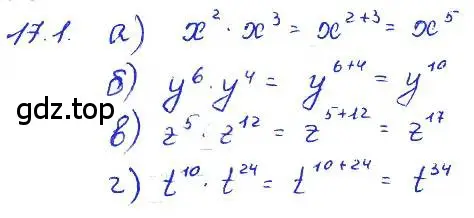 17.1. а) x² · x³ = x²⁺³ = x⁵
б) y⁶ · y⁴ = y⁶⁺⁴ = y¹⁰
gdz.top
в) z⁵ · z¹² = z⁵⁺¹² = z¹⁷
г) t¹⁰ · t²⁴ = t¹⁰⁺²⁴ = t³⁴